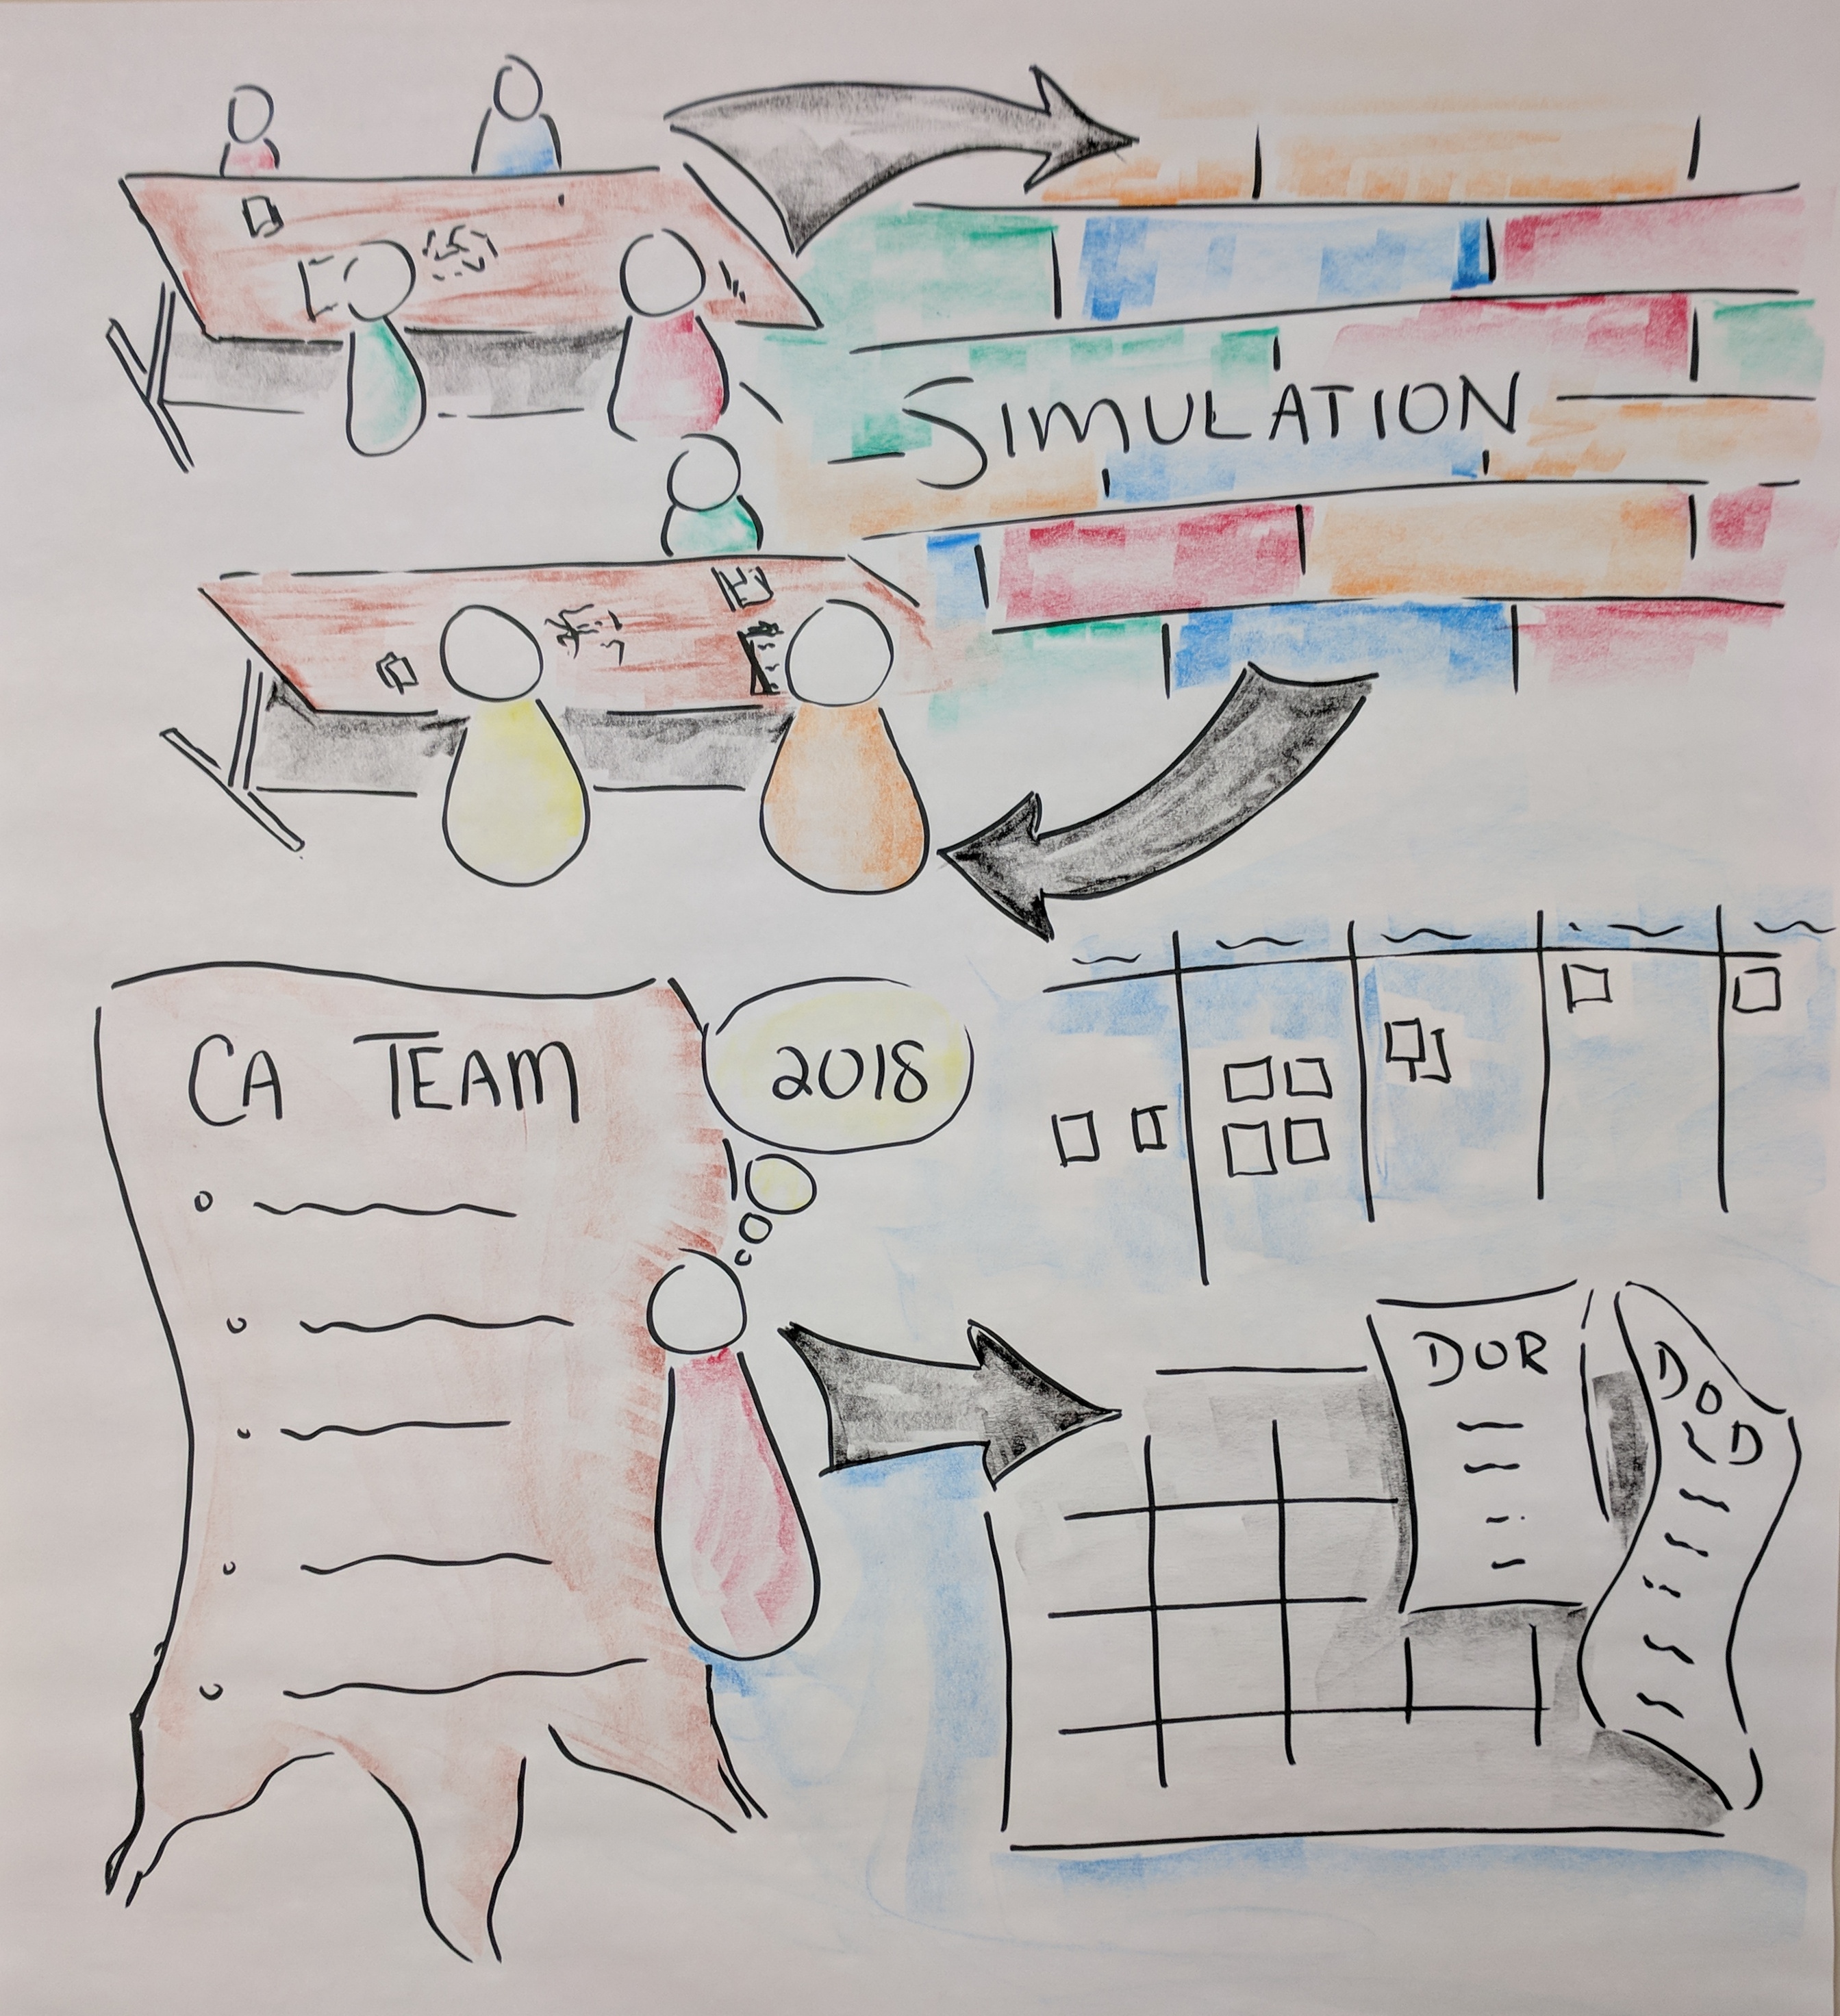 SIMULATION
CA TEAM
2018
DOR
DOD